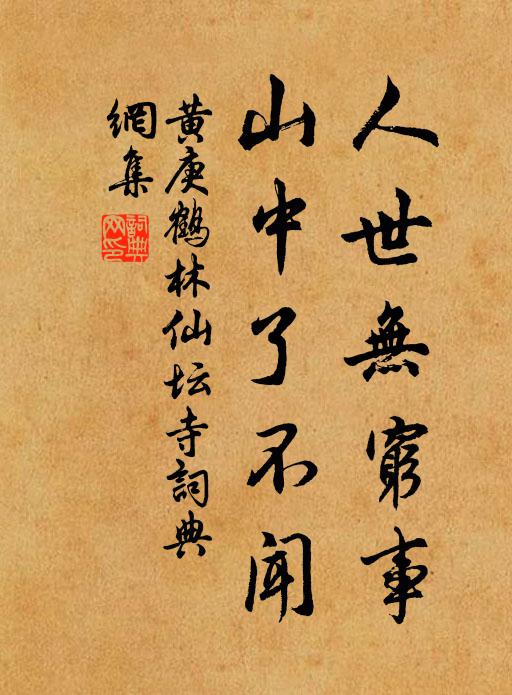 人世無窮事
山中了不闻
黄庚鶴林仙坛寺詞典
網集
詞典
网印